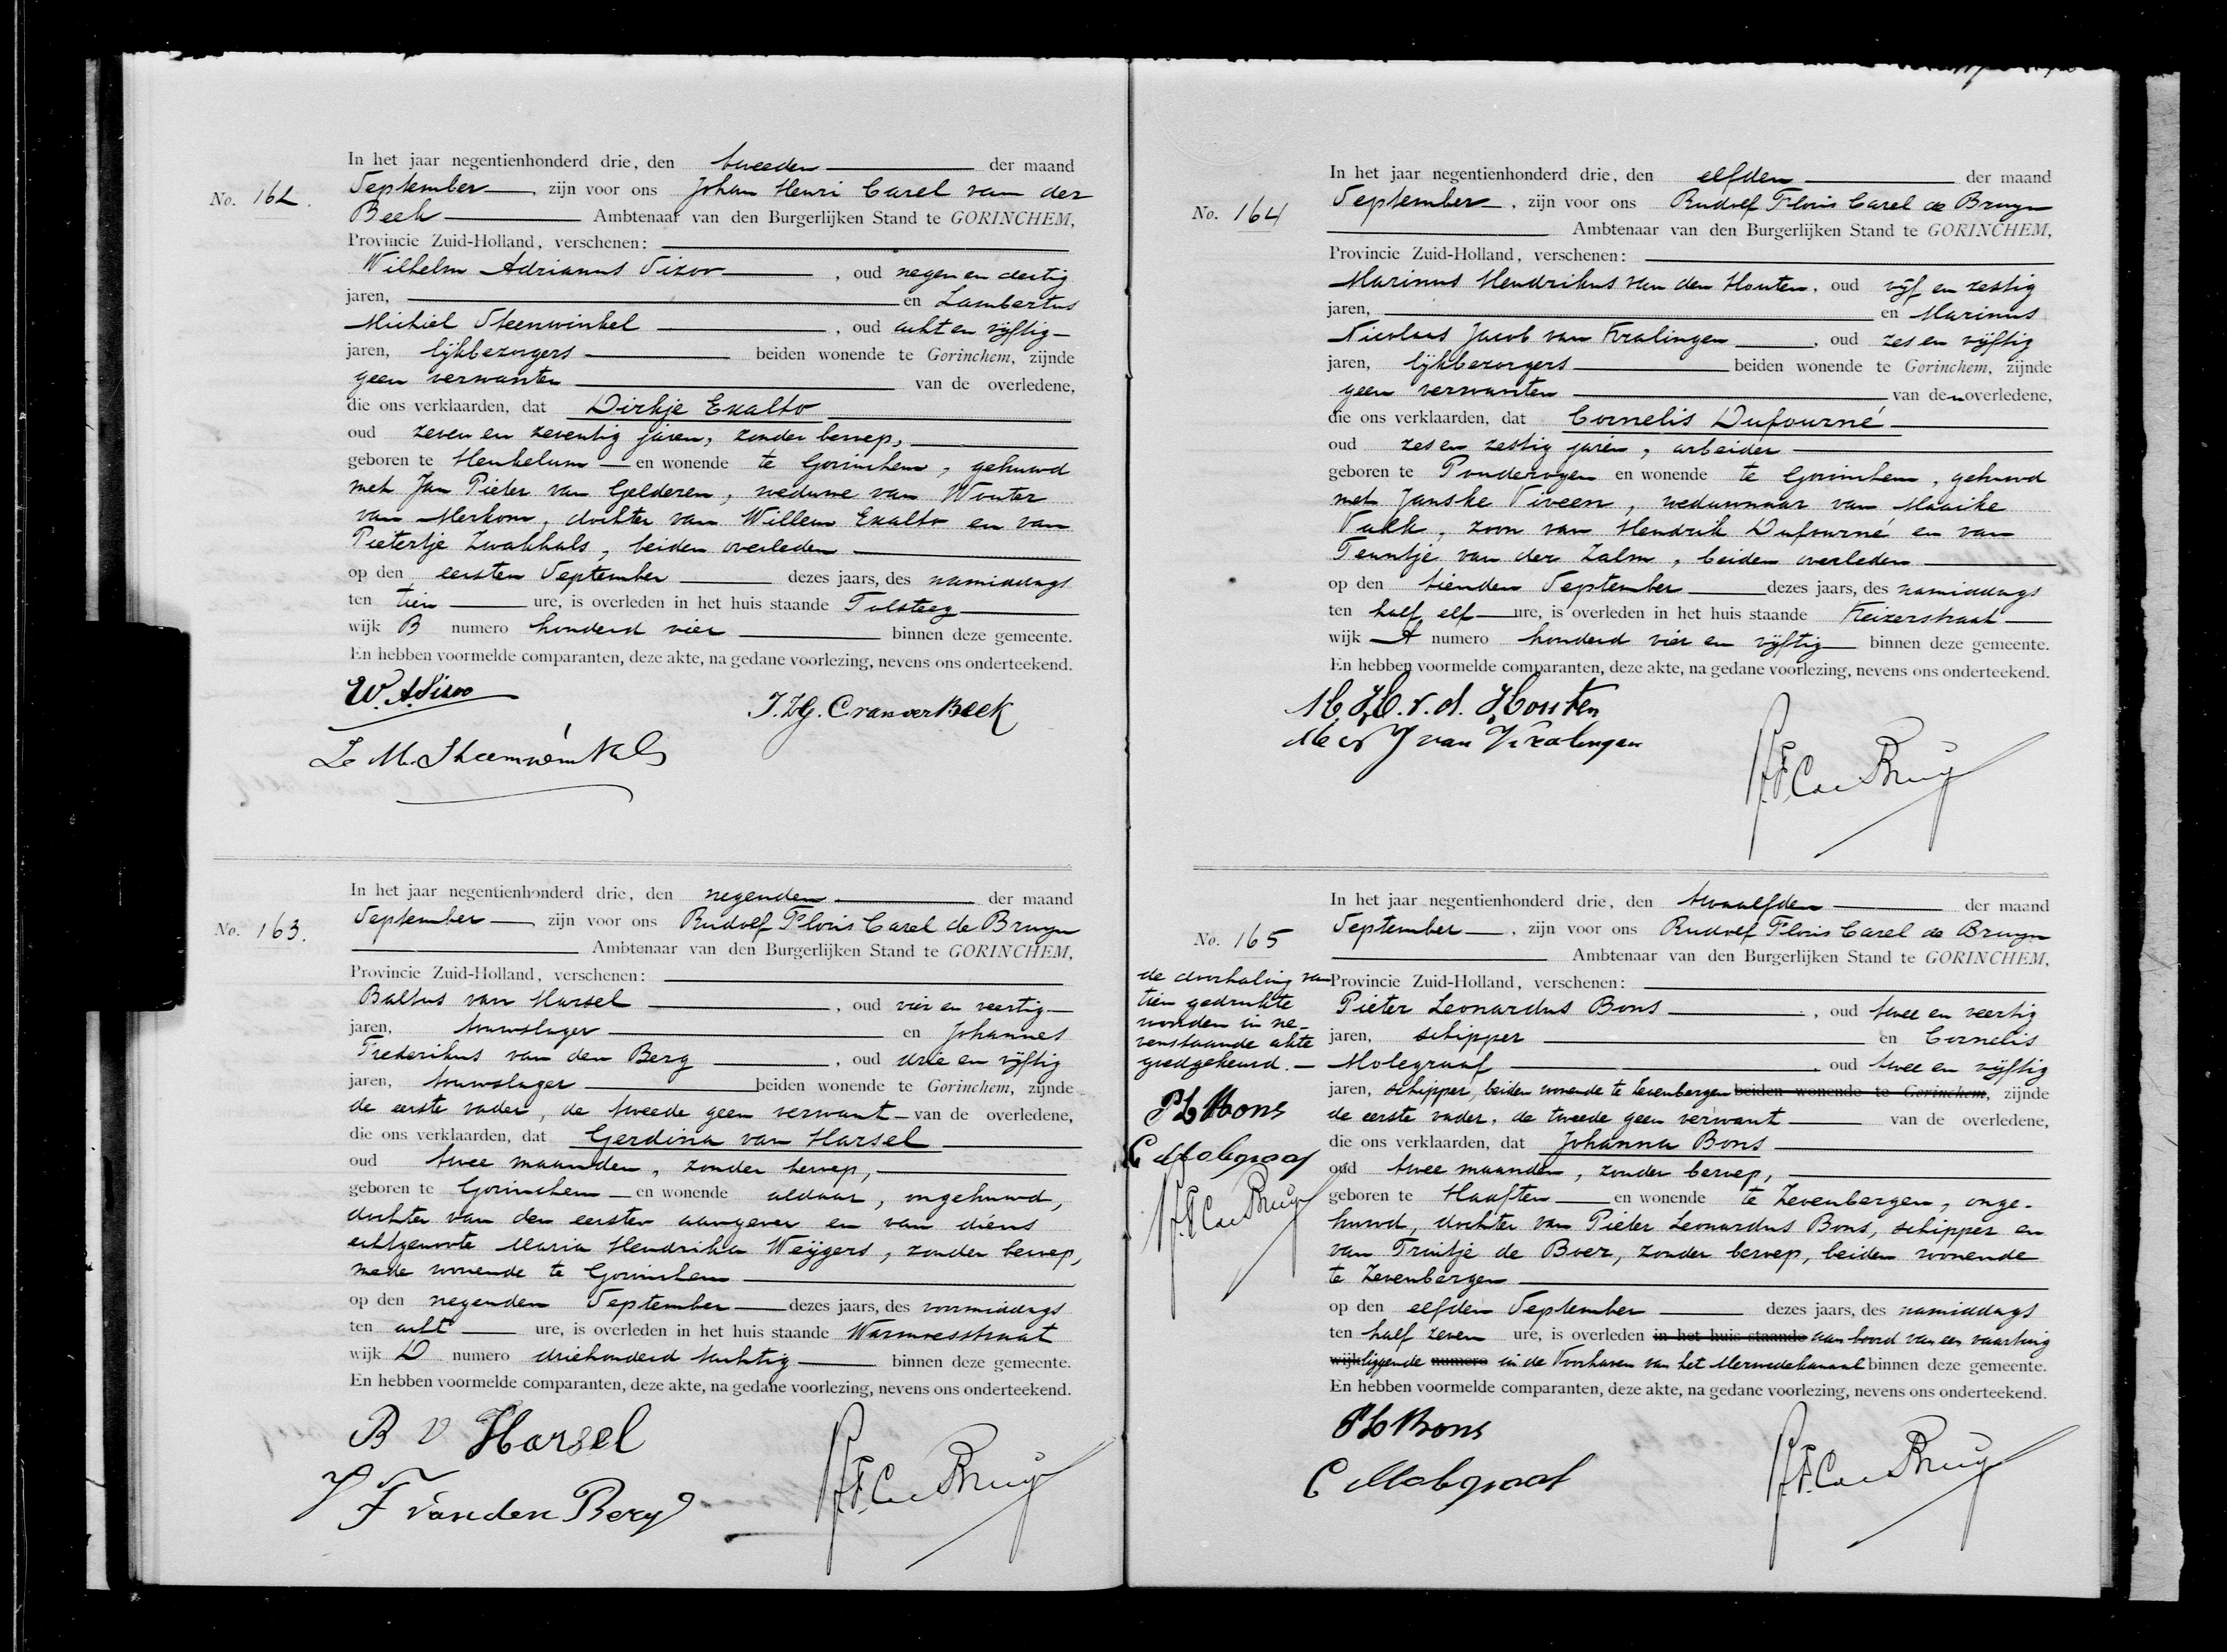 No. 162.
In het jaar negentienhonderd drie, den tweeden der maand
September, zijn voor ons Johan Henri Carel van der
Beek Ambtenaar van den Burgerlijken Stand te GORINCHEM,
Provincie Zuid-Holland, verschenen:
Wilhelm Adrianus Sizoo, oud negen en dertig
jaren, en Lambertus
Michiel Steenwinkel, oud acht en vijftig
jaren, lijkbezorgers beiden wonende te Gorinchem, zijnde
geen verwanten van de overledene,
die ons verklaarden, dat Dirkje Exalto
oud zeven en zeventig jaren, zonder beroep,
geboren te Heukelum en wonende te Gorinchem, gehuwd
met Jan Pieter van Gelderen, weduwe van Wouter
van Merkom, dochter van Willem Exalto en van
Pietertje Zwakhals, beiden overleden
op den eersten September dezes jaars, des namiddags
ten tien ure, is overleden in het huis staande Tolsteeg
wijk B numero honderd vier binnen deze gemeente.
En hebben voormelde comparanten, deze akte, na gedane voorlezing, nevens ons onderteekend.
W. A. Sizoo
J. H. C van der Beek
L. M. Steenwinkel
No. 163.
In het jaar negentienhonderd drie, den negenden der maand
September, zijn voor ons Rudolf Floris Carel de Bruyn
Ambtenaar van den Burgerlijken Stand te GORINCHEM,
Provincie Zuid-Holland, verschenen:
Baltus van Harsel, oud vier en veertig
jaren, touwslager en Johannes
Frederikus van den Berg, oud drie en vijftig
jaren, touwslager beiden wonende te Gorinchem, zijnde
de eerste vader, de tweede geen verwant van de overledene,
die ons verklaarden, dat Gerdina van Harsel
oud twee maanden, zonder beroep,
geboren te Gorinchem en wonende aldaar, ongehuwd,
dochter van den eersten aangever en van diens
echtgenoote Maria Hendrika Weijgers, zonder beroep,
mede wonende te Gorinchem
op den negenden September dezes jaars, des voormiddags
ten acht ure, is overleden in het huis staande Warmoesstraat
wijk D numero driehonderd tachtig binnen deze gemeente.
En hebben voormelde comparanten, deze akte, na gedane voorlezing, nevens ons onderteekend.
B v Harsel
J F van den Berg
R.F.C. de Bruyn
No. 164
In het jaar negentienhonderd drie, den elfden der maand
September, zijn voor ons Rudolf Floris Carel de Bruyn
Ambtenaar van den Burgerlijken Stand te GORINCHEM,
Provincie Zuid-Holland, verschenen:
Marinus Hendrikus van den Houten, oud vijf en zestig
jaren, en Marinus
Nicolaas Jacob van Kralingen, oud zes en vijftig
jaren, lijkbezorgers beiden wonende te Gorinchem, zijnde
geen verwanten van den overledene,
die ons verklaarden, dat Cornelis Dufourné
oud zes en zestig jaren, arbeider
geboren te Pouderoyen en wonende te Gorinchem, gehuwd
met Janske Viveen, weduwnaar van Maaike
Valk, zoon van Hendrik Dufourné en van
Teuntje van der Zalm, beiden overleden
op den tienden September dezes jaars, des namiddags
ten half elf ure, is overleden in het huis staande Keizerstraat
wijk A numero honderd vier en vijftig binnen deze gemeente.
En hebben voormelde comparanten, deze akte, na gedane voorlezing, nevens ons onderteekend.
M. H. v. d. Houten
M N J van Kralingen
R.F.C. de Bruyn
No. 165
In het jaar negentienhonderd drie, den twaalfden der maand
September, zijn voor ons Rudolf Floris Carel de Bruyn
Ambtenaar van den Burgerlijken Stand te GORINCHEM,
Provincie Zuid-Holland, verschenen:
Pieter Leonardus Bons, oud twee en veertig
jaren, schipper en Cornelis
Molegraaf oud twee en vijftig
jaren, schipper, beiden wonende te Zevenbergen beiden wonende te Gorinchem, zijnde
de eerste vader, de tweede geen verwant van de overledene,
die ons verklaarden, dat Johanna Bons
oud twee maanden, zonder beroep,
geboren te Haaften en wonende te Zevenbergen, onge-
huwd, dochter van Pieter Leonardus Bons, schipper en
van Trintje de Boer, zonder beroep, beiden wonende
te Zevenbergen
op den elfden September dezes jaars, des namiddags
ten half zeven ure, is overleden in het huis staande aan boord van een vaartuig
wijk liggende numero in de Voorhaven van het Merwedekanaal binnen deze gemeente.
En hebben voormelde comparanten, deze akte, na gedane voorlezing, nevens ons onderteekend.
P L Bons
C Molegraaf
R.F.C. de Bruyn
de doorhaling van
tien gedrukte
woorden in ne-
venstaande akte
goedgekeurd.
P L Bons
C Molegraaf
R.F.C. de Bruyn